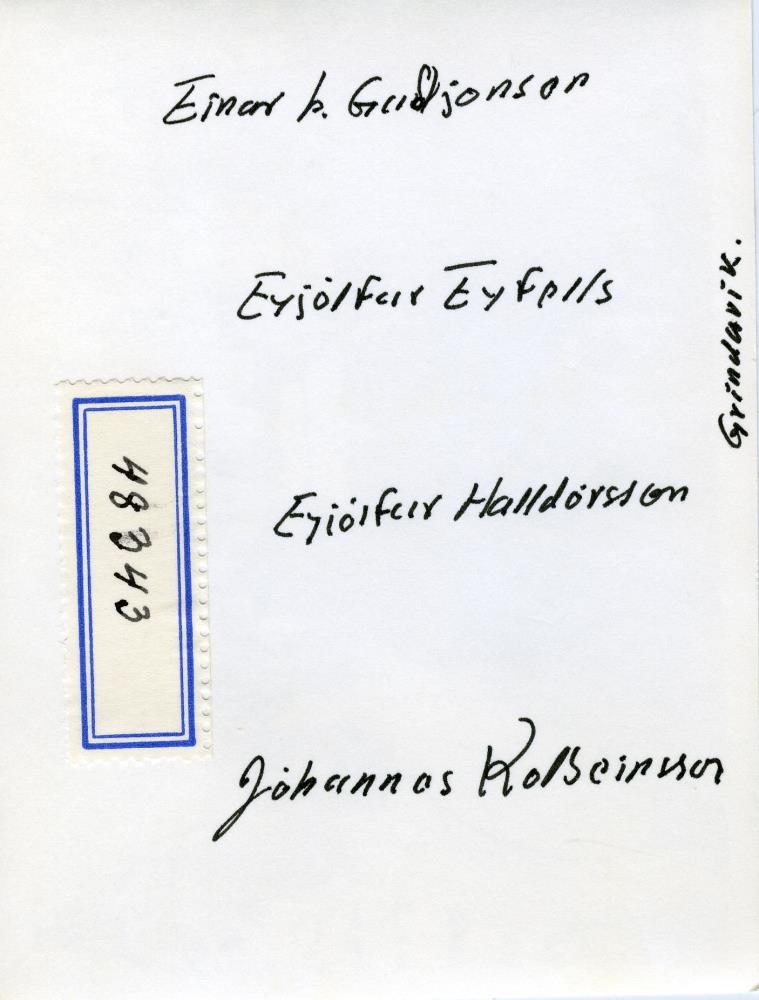 Einar Þ. Guðjonson
Eyjólfur Eyfells
Grindavik.
Eyjólfur Halldórsson
48343
Jóhannes Kolbeinsson